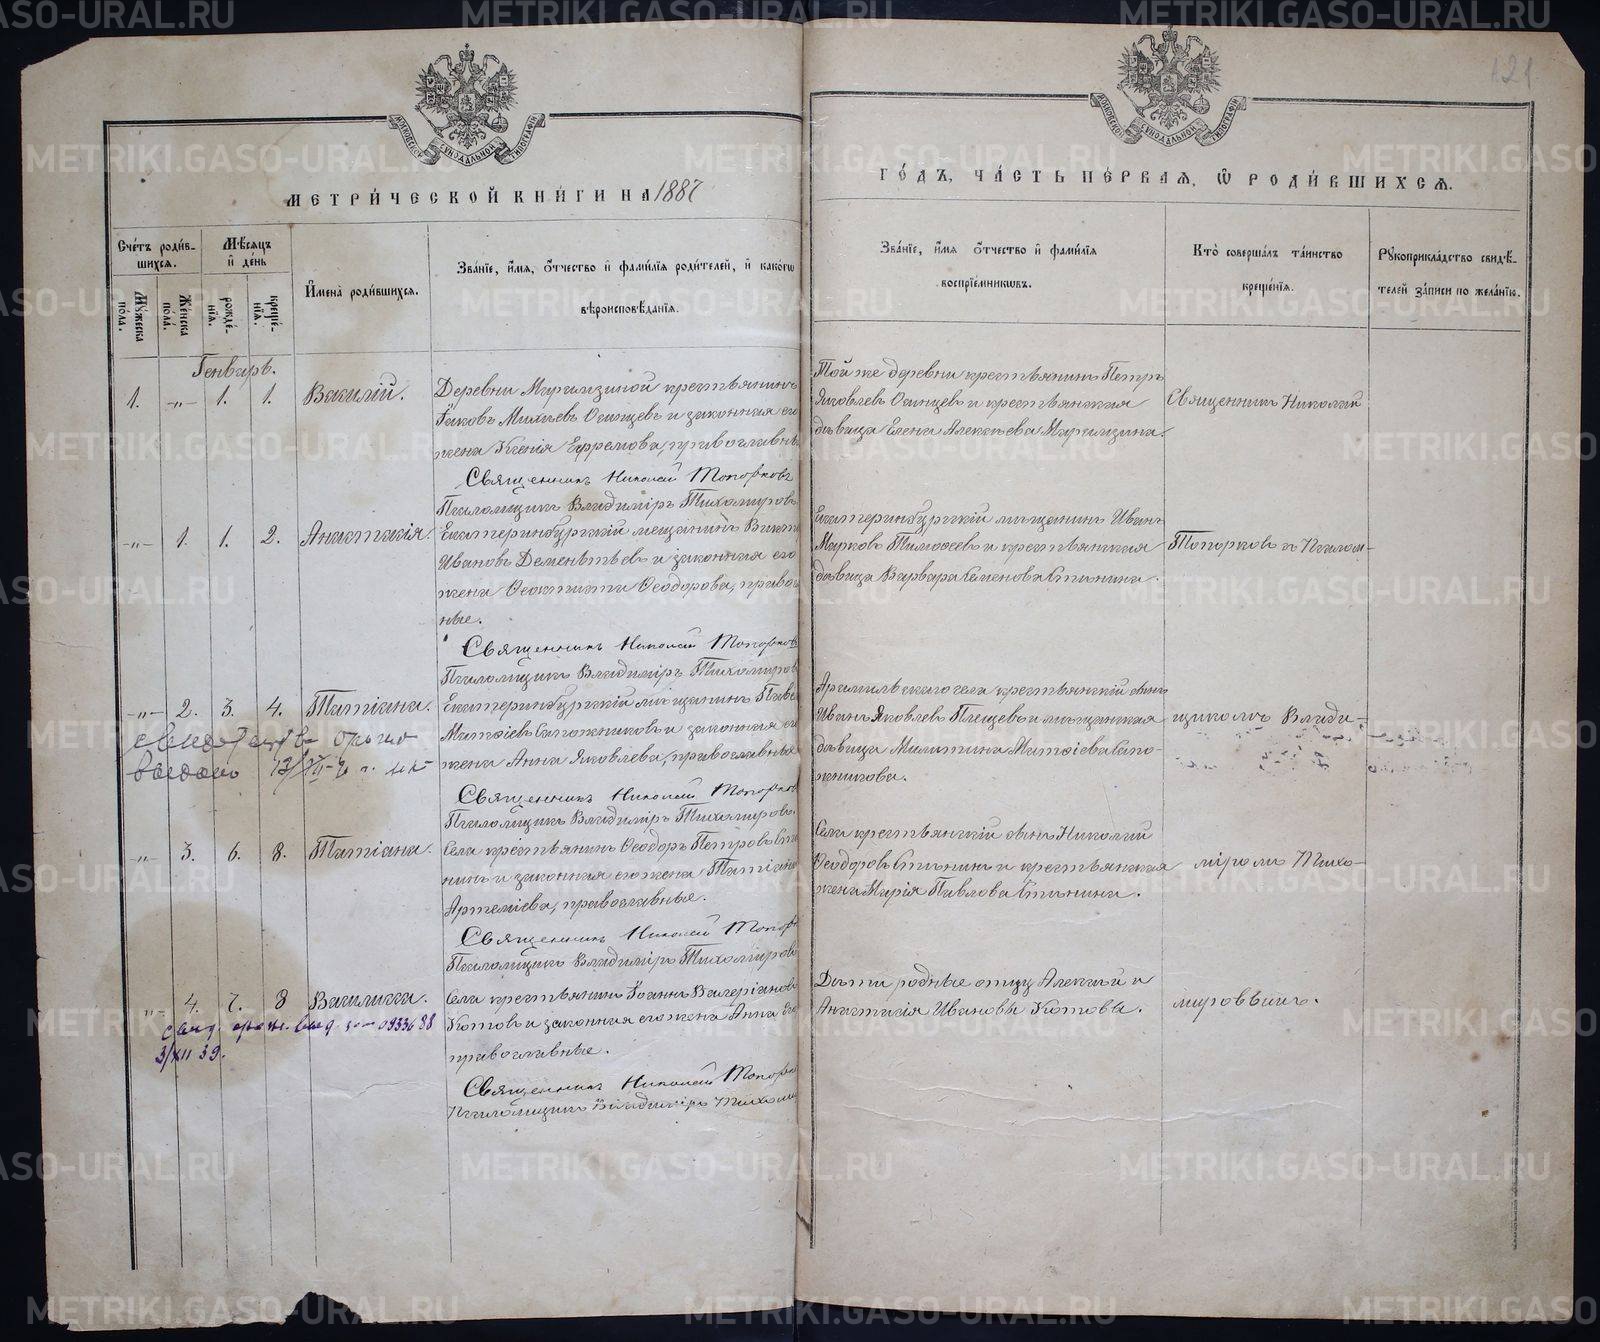 121.
МОСКОВСКОЙ СУНОДАЛЬНОЙ ТИПОГРАФІИ
МОСКОВСКОЙ СУНОДАЛЬНОЙ ТИПОГРАФІИ
МЕТРИ́ЧЕСКОЙ КНИ́ГИ НА 1887
ГО́ДЪ, ЧА́СТЬ ПЕ́РВАЯ, Ѡ РОДИ́ВШИХСЯ.
Сче́тъ роди́в-
шихся.
Мꙋжеска по́ла.
Же́нска по́ла.
Мѣ́сяцъ
и҆ де́нь
рожде́-
нїя.
креще́-
нїя.
И҆мена̀ роди́вшихся.
Зва́нїе, и҆́мя, ѻ҆́тчество и҆ фами́лїя роди́телей, и҆ како́гѡ
вѣроисповѣ́данїя.
Зва́нїе, и҆́мя ѻ҆́тчество и҆ фами́лїя
воспрїе́мникѡвъ.
Кто̀ соверша́лъ та́инство
креще́нїя.
Рꙋкоприкла́дство свидѣ́-
телей за́писи по жела́нїю.
Генварь.
1. -„- 1. 1. Василій.
Деревни Маргамзиной крестьянинъ
Іаковъ Осинцевъ и законная его
жена Ксенія Ефремова, православн
Священникъ Николай Топорковъ
Псаломщикъ Владиміръ Тихомировъ
Той же деревни крестьянинъ Петръ
Яковлевъ Осинцевъ и крестьянская
дѣвица Елена Алексѣева
Священникъ Николай
-„- 1. 1. 2. Анастасія.
Екатеринбургскій мещанинъ Викт
Ивановъ Дементьевъ и законная его
жена Ѳеоктиста Ѳеодорова, правос
ные.
Священникъ Николай Топорков
Псаломщикъ Владиміръ Тихомиров
Екатеринбургскій мѣщанинъ Иванъ
Марковъ Тимоѳеевъ и крестьянская
дѣвица Варвара Семенова
Топорковъ съ Псалом-
-„- 2. 3. 4. Татіана.
свидетельство
выдано
Екатеринбургскій мѣщанинъ Паве
Матѳіевъ Сапожниковъ и законная ег
жена Анна Яковлева, православные
Священникъ Николай Топорков
Псаломщикъ Владиміръ Тихомировъ.
Арамильскаго села крестьянскій сынъ
Иванъ Яковлевъ Плещевъ и мѣщанская
дѣвица Милитина Матѳіева Сапо-
жникова.
щикомъ Влади-
-„- 3. 6. 8. Татіана.
Села крестьянинъ Ѳеодоръ Петровъ
нинъ и законная его жена Татіана
Артеміева, православные.
Священникъ Николай Топор
Псаломщикъ Владиміръ Тихомиров
Села крестьянскій сынъ Николай
Ѳеодоровъ и крестьянская
жена Марія Павлова
міромъ Тихо-
„- 4. 7. 8 Василисса.
свид. о рожд. выд. за № 0933688
3/XII 39.
Села крестьянинъ Іоаннъ Валеріановъ
Котовъ и законная его жена Анна
православные.
Священникъ Николай Топорк
Псаломщикъ Владиміръ Тихоми
Дѣти родные отцу Алексѣй и
Анастасія Ивановы Котовы.
мировымъ.
METRIKI.GASO-URAL.RU